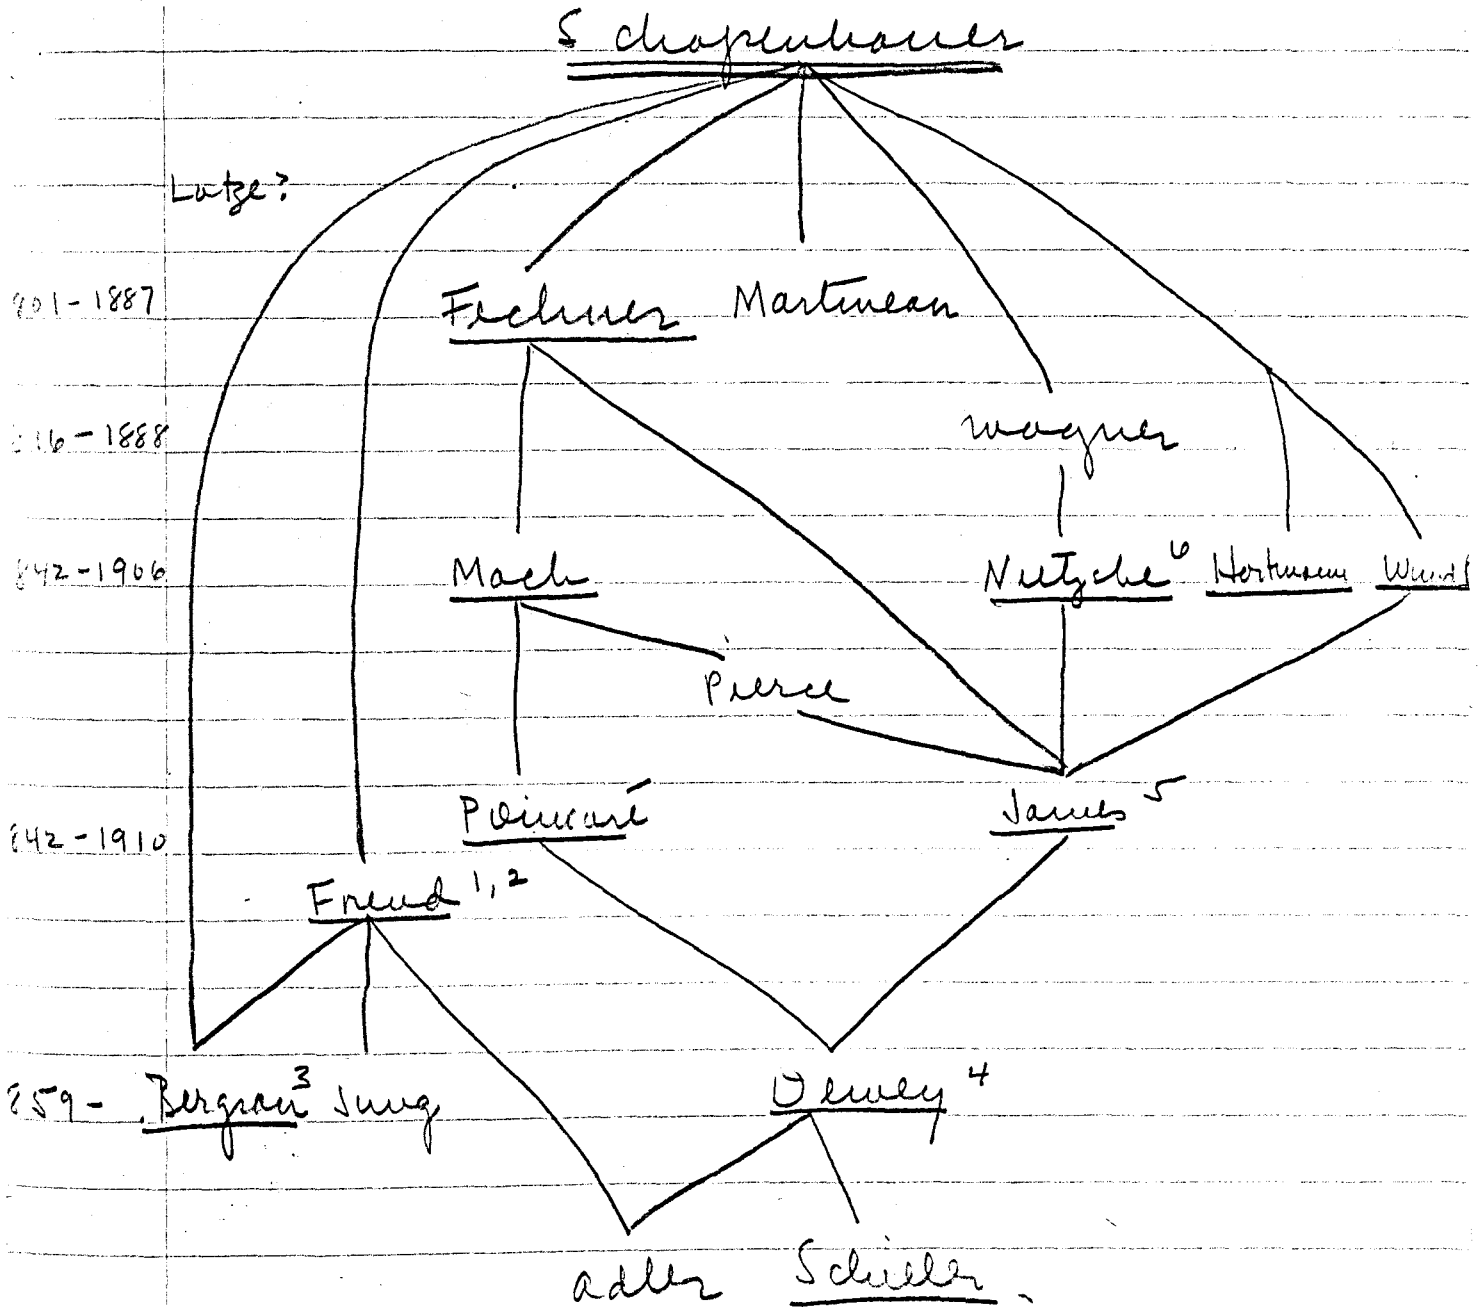 Schopenhauer
Lotze?
801-1887 Fechner Martineau
816-1888 Wagner
842-1906 Mach Nietzche 6 Hartmann Wundt
Pierce
842-1910 Poincaré James 5
Freud 1,2
859- Bergson 3 Jung Dewey 4
Adler Schiller.